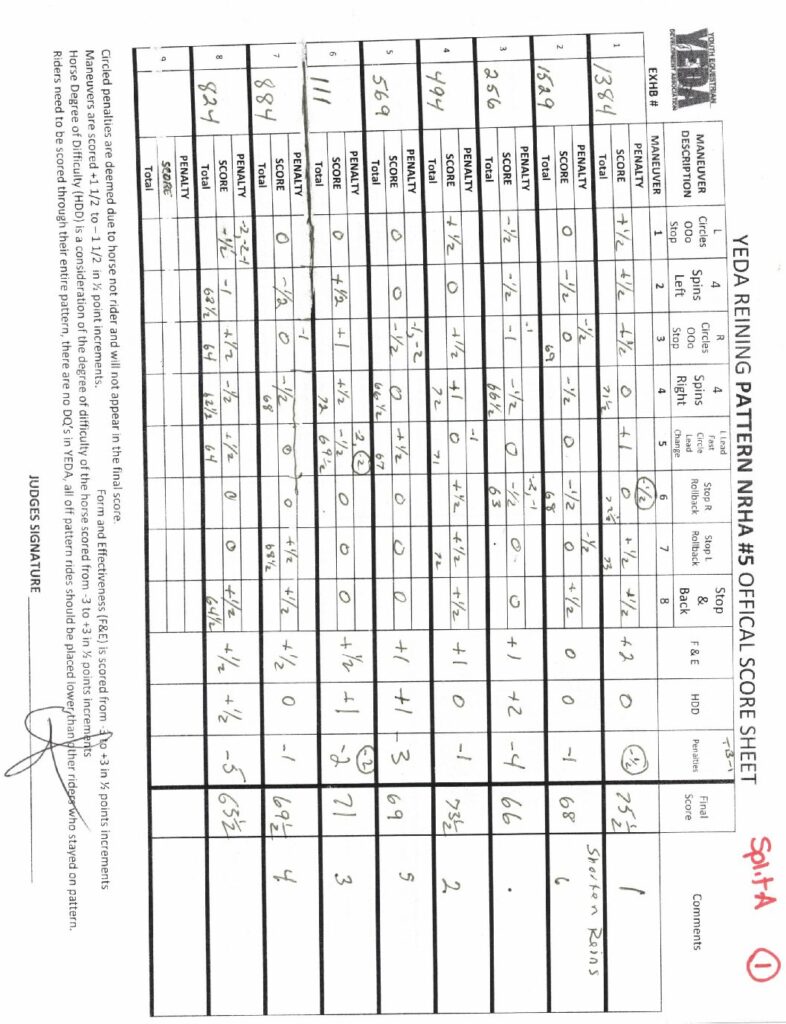 YEDA REINING PATTERN NRHA #5 OFFICAL SCORE SHEET
Split A 1
YOUTH EQUESTRIAN
YEDA
DEVELOPMENT ASSOCIATION
TB-1
EXHB # MANEUVER DESCRIPTION L Circles OOo Stop 4 Spins Left R Circles OOo Stop 4 Spins Right L Lead Fast Circle Lead Change Stop R Rollback Stop L Rollback Stop & Back F & E HDD Penalties Final Score Comments
MANEUVER 1 2 3 4 5 6 7 8
1 1384 PENALTY 1/2
SCORE +1/2 +1/2 +1/2 0 +1 0 +1/2 +1/2 +2 0 -1/2 75 1/2 1
Total 71 1/2 72 1/2 73
2 1529 PENALTY -1/2 -1/2
SCORE 0 -1/2 0 -1/2 0 -1/2 0 +1/2 0 0 -1 68 Shorten Reins 6
Total 69 68
3 256 PENALTY -1 -2, -1
SCORE -1/2 -1/2 -1 -1/2 0 -1/2 0 0 +1 +2 -4 66
Total 66 1/2 63
4 494 PENALTY -1
SCORE +1/2 0 +1/2 +1 0 +1/2 +1/2 +1/2 +1 0 -1 73 1/2 2
Total 72 71 72
5 569 PENALTY -1, -2
SCORE 0 0 -1/2 0 +1/2 0 0 0 +1 +1 -3 69 5
Total 66 1/2 67
6 111 PENALTY -2, 2 -2
SCORE 0 +1/2 +1 +1/2 -1/2 0 0 0 +1/2 +1 -2 71 3
Total 72 69 1/2
7 884 PENALTY -1
SCORE 0 -1/2 0 -1/2 0 0 +1/2 +1/2 +1/2 0 -1 69 1/2 4
Total 68 68 1/2
8 824 PENALTY -2, -2 -1
SCORE -1/2 -1 +1/2 -1/2 +1/2 0 0 +1/2 +1/2 +1/2 -5 65 1/2
Total 63 1/2 64 63 1/2 64 64 1/2
9 PENALTY
SCORE
Total
Circled penalties are deemed due to horse not rider and will not appear in the final score.
Maneuvers are scored +1 1/2 to – 1 1/2 in ½ point increments. Form and Effectiveness (F&E) is scored from -3 to +3 in ½ points increments
Horse Degree of Difficulty (HDD) is a consideration of the degree of difficulty of the horse scored from -3 to +3 in ½ points increments
Riders need to be scored through their entire pattern, there are no DQ's in YEDA, all off pattern rides should be placed lower than other riders who stayed on pattern.
JUDGES SIGNATURE